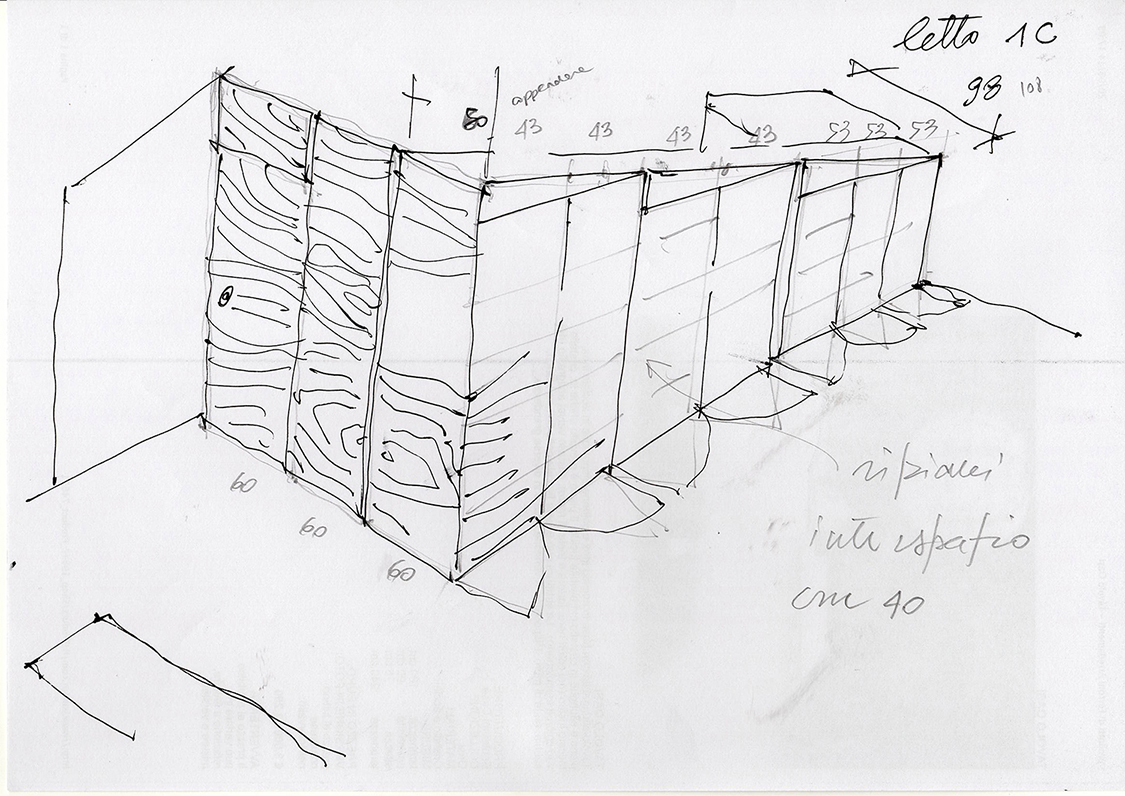 letto 1C
98 108
appendere
80
43 43 43 43 53 53 53
60
60
60
ripiani
interspazio
cm 40